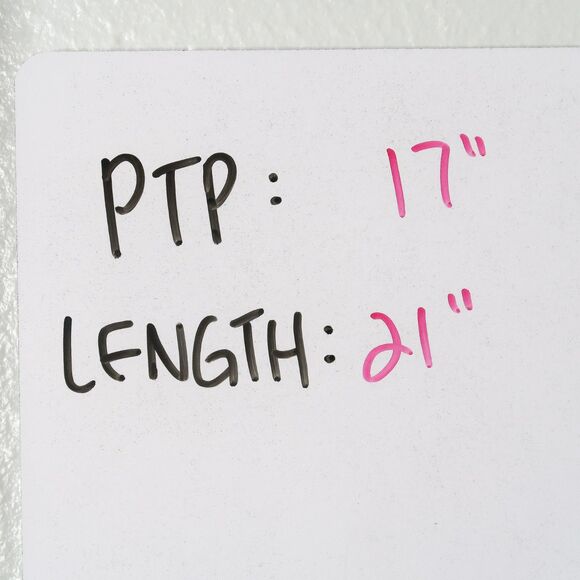 PTP: 17"
LENGTH: 21"